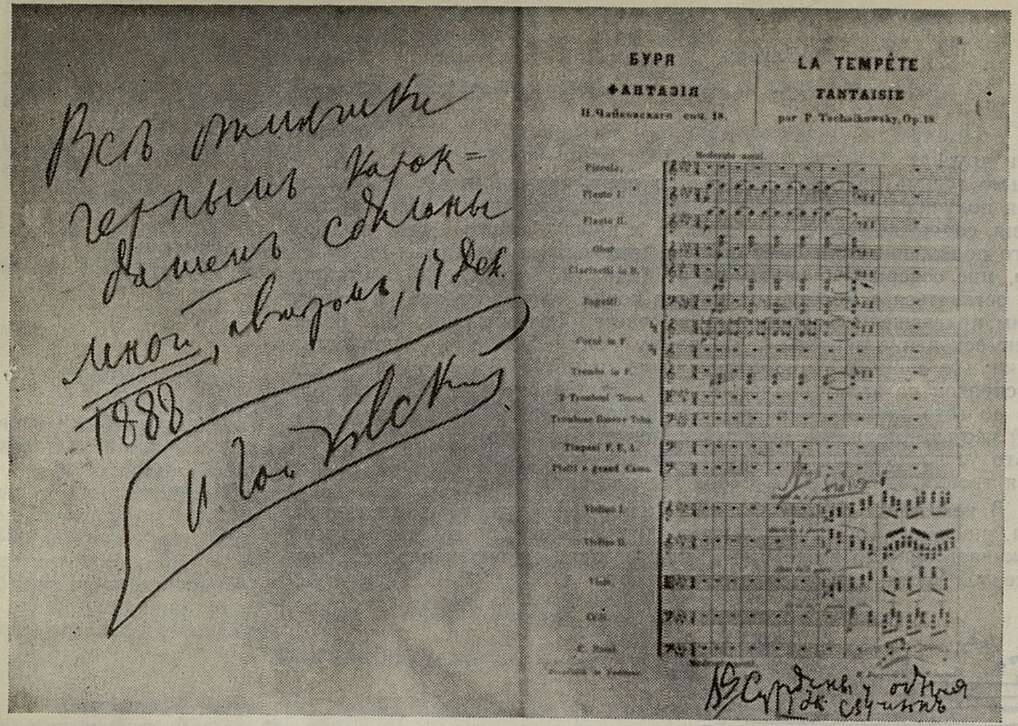 Всѣ отмѣтки
чернымъ каран=
дашемъ сдѣланы
мной, авторомъ, 17 Дек.
1888
П Чайковскій
БУРЯ
ФАНТАЗІЯ
П. Чайковскаго соч. 18.
LA TEMPÊTE
FANTAISIE
par P. Tschaikowsky, Op. 18.
Moderato assai.
Piccolo.
Flauto I.
Flauto II.
Oboi
Clarinetti in B.
Fagotti.
Corni in F.
Trombe in F.
2 Tromboni Tenori.
Trombone Basso e Tuba.
Timpani F. E. A.
Piatti e grand Cassa.
Violino I.
Violino II.
Viole
Celli.
C. Bassi.
NB Сурдины